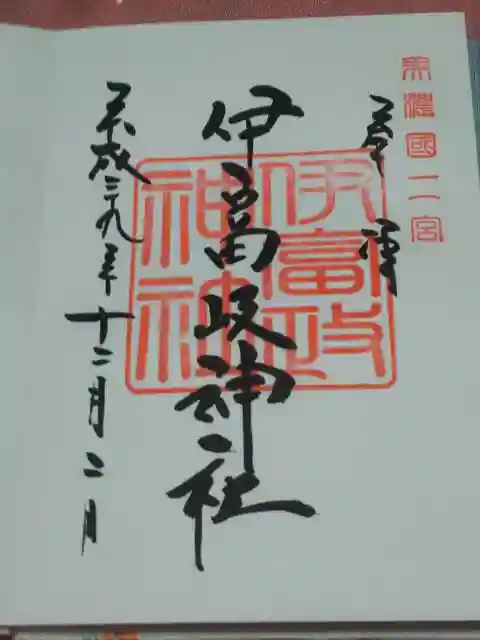 美濃國二宮
奉拝
伊富岐神社
伊富岐神社
平成二九年十二月二日